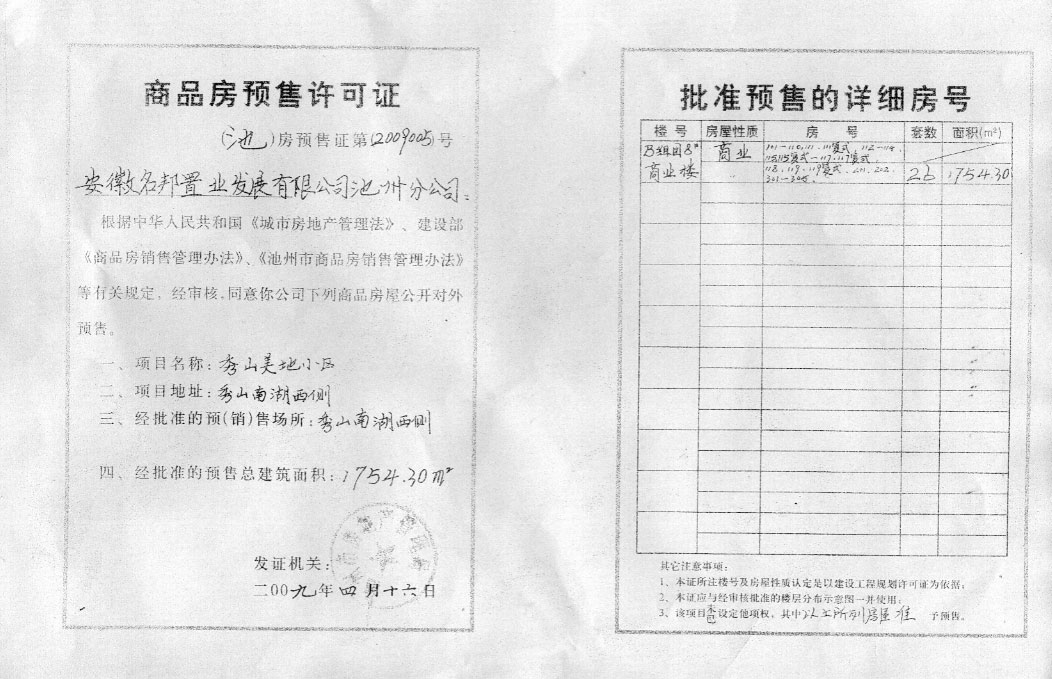 商品房预售许可证
(池)房预售证第(2009005)号
安徽名邦置业发展有限公司池州分公司:
根据中华人民共和国《城市房地产管理法》、建设部
《商品房销售管理办法》、《池州市商品房销售管理办法》
等有关规定,经审核,同意你公司下列商品房屋公开对外
预售。
一、项目名称:秀山美地小区
二、项目地址:秀山南湖西侧
三、经批准的预(销)售场所:秀山南湖西侧
四、经批准的预售总建筑面积:1754.30m²
发证机关:
二00九年四月十六日
批准预售的详细房号
楼号 房屋性质 房号 套数 面积(m²)
B组团8# 商业 101-110.111.111复式.112-114.
115.115复式-117.117复式.
商业楼 118.119.119复式.201.202. 26 1754.30
301-305.
其它注意事项:
1、本证所注楼号及房屋性质认定是以建设工程规划许可证为依据;
2、本证应与经审核批准的楼层分布示意图一并使用;
3、该项目未设定他项权,其中以上所列房屋准予预售。